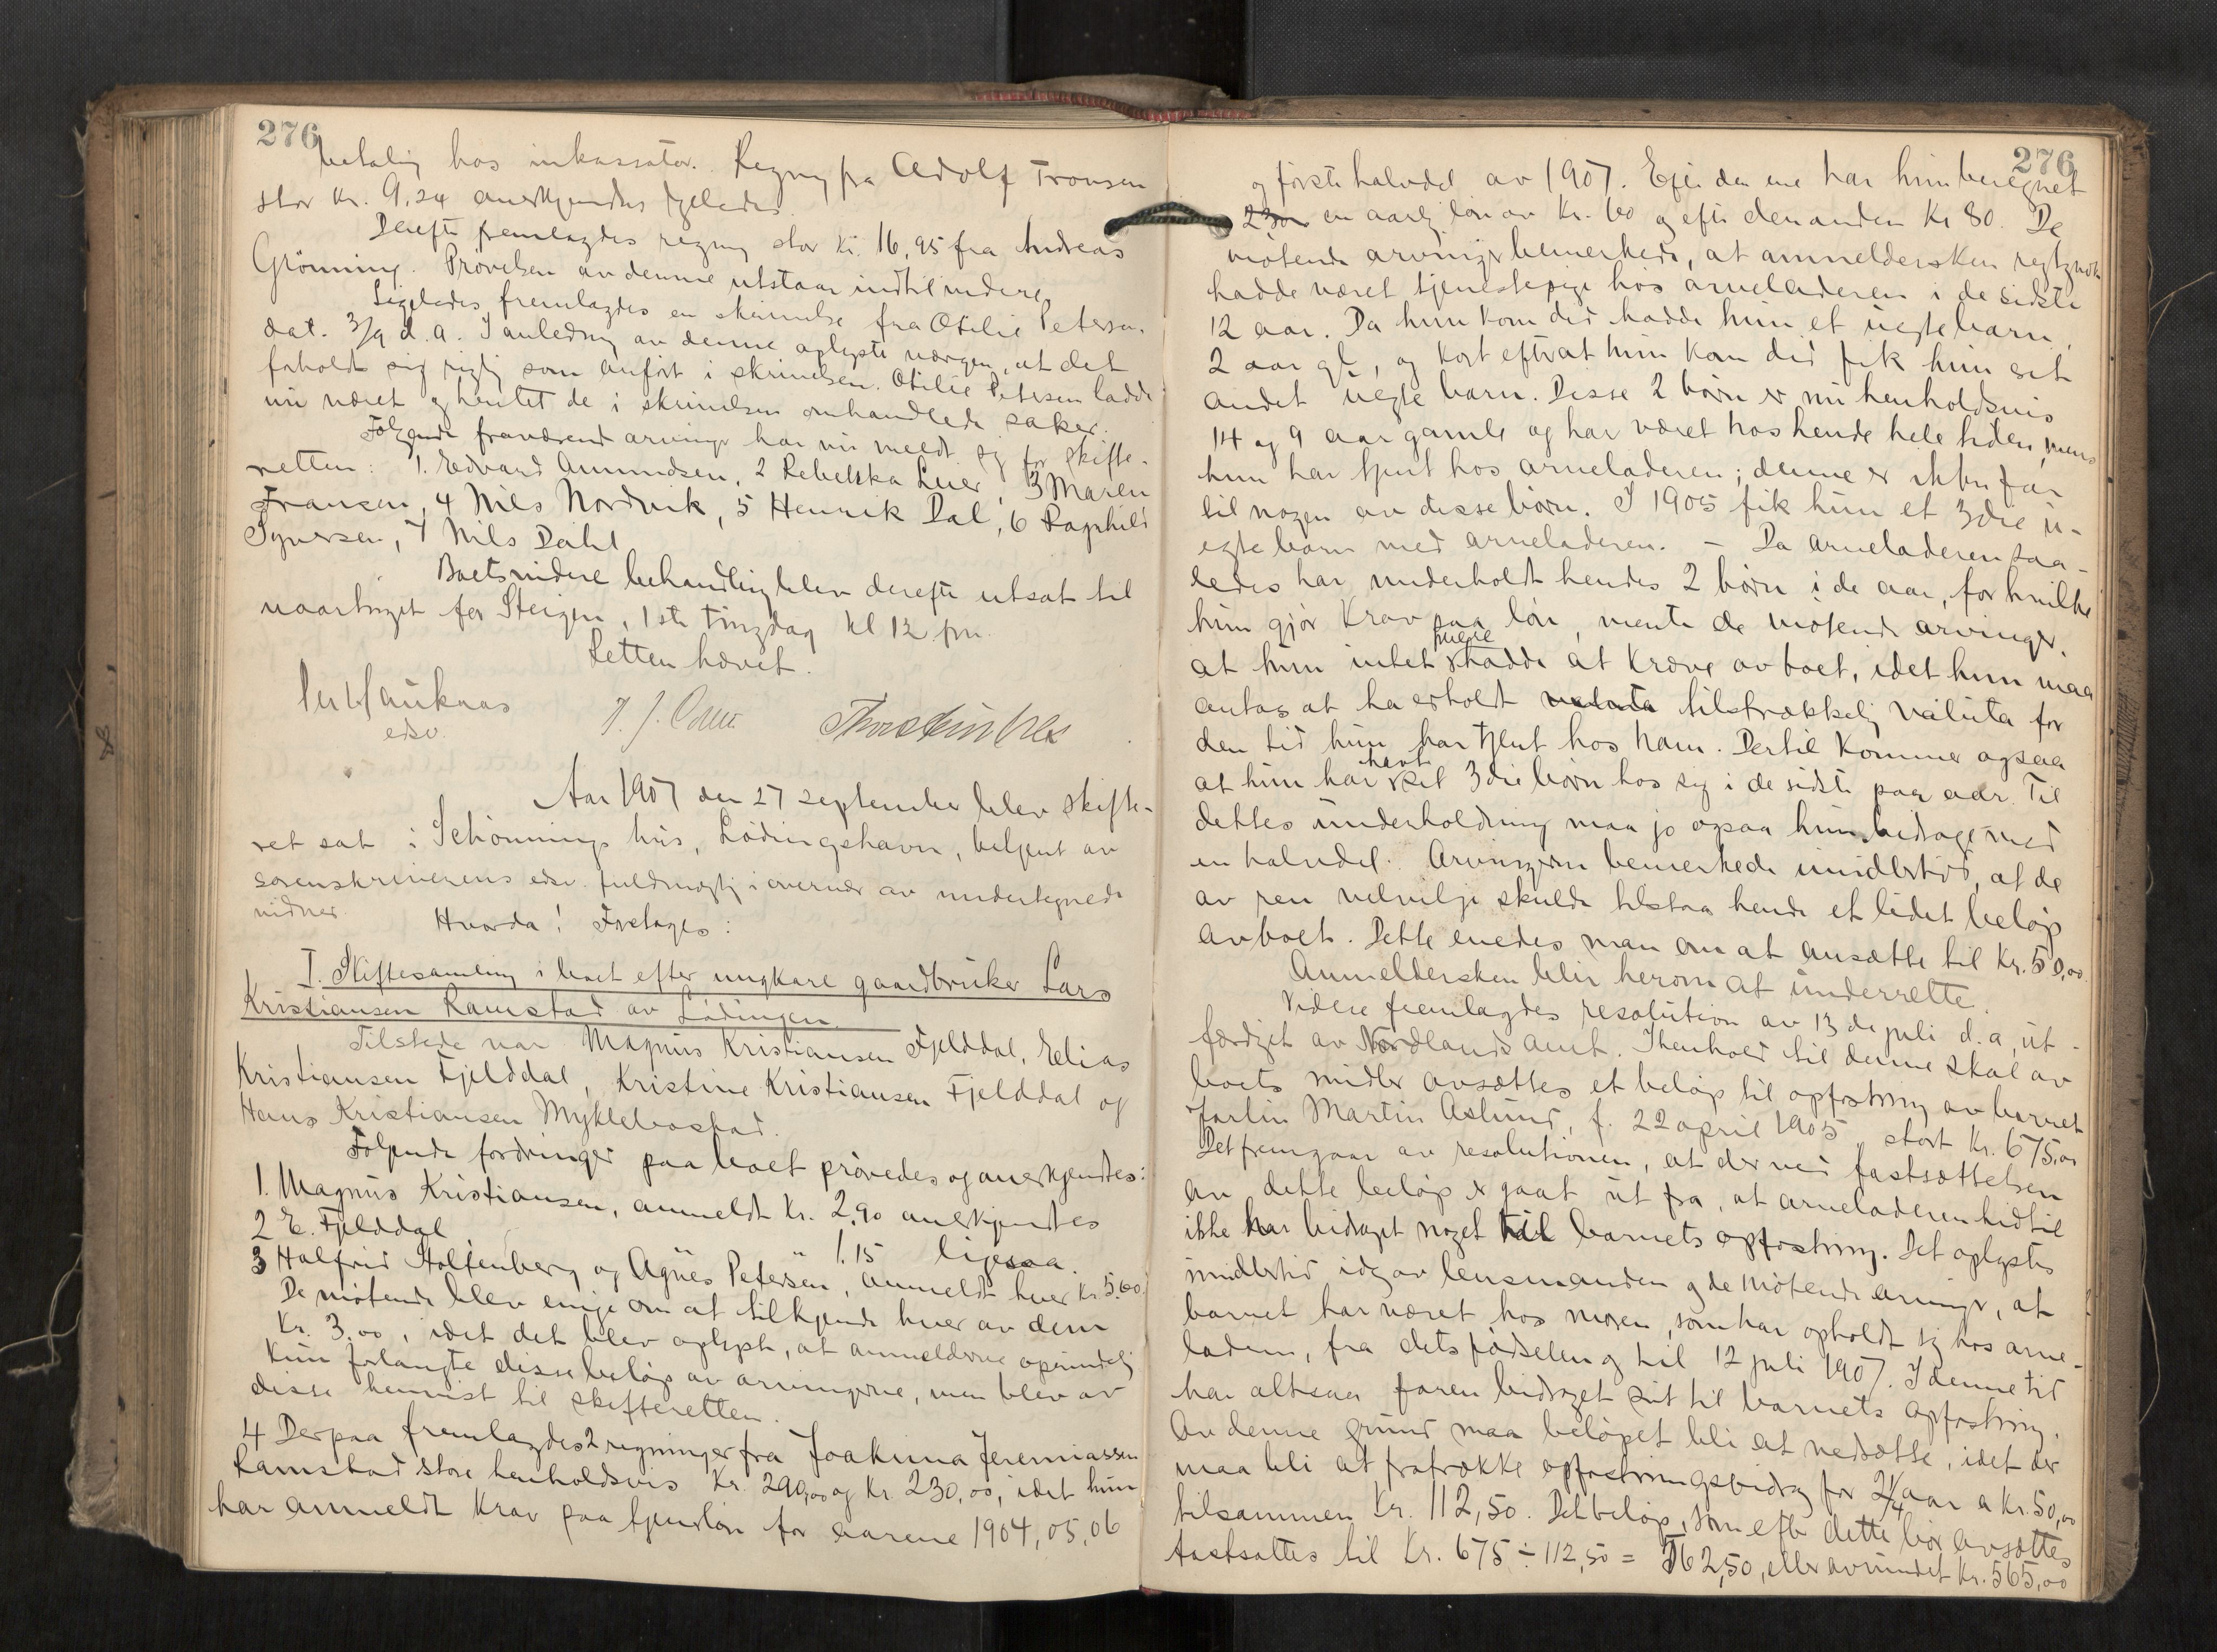 276
betaling hos inkassator. Regning fra Adolf Tronsen
stor kr. 9,24 anerkjendtes ligeledes.
Derefter fremlagdes regning stor kr. 16,95 fra Andreas
Grönning. Prövelsen av denne utstaar indtil videre.
Ligeledes fremlagdes en skrivelse fra Otilie Petersen
dat. 3/9 d.a. I anledning av denne oplyste værgen, at det
forholdt sig rigtig som anfört i skrivelsen. Otilie Petersen hadde
nu været og hentet de i skrivelsen omhandlede saker.
Fölgende fraværende arvinger har nu meldt sig for skifte-
retten: 1. Edvard Amundsen, 2 Rebekka Lier, 3 Maren
Fransen, 4 Nils Nordvik, 5 Henrik Dal, 6 Ragnhild
Syversen, 7 Nils Dahl
Boets videre behandling blev derefter utsat til
vaartinget for Steigen, 1ste tingdag kl 12 fm.
Retten hævet.
Per Hauknas
edsv.
Aar 1907 den 27 september blev skifte-
ret sat i Schönnings hus, Lödingshavn, betjent av
sorenskriverens edsv. fuldmægtig i overvær av undertegnede
vidner.
Hvorda! Foretages:
I. Skiftesamling i boet efter ungkare gaardbruker Lars
Kristiansen Ramstad av Lödingen
Tilstede var Magnus Kristiansen Fjelddal, Elias
Kristiansen Fjelddal, Kristine Kristiansen Fjelddal og
Hans Kristiansen Myklebostad.
Fölgende fordringer paa boet prövedes og anerkjendtes:
1. Magnus Kristiansen, anmeldt kr. 2,90 anerkjendtes
2 E. Fjelddal " 1.15 ligesaa.
3 Halfrid Holtenberg og Agnes Petersen, anmeldt hver kr 5.00.
De mötende blev enige om at tilkjende hver av dem
kr. 3.00, idet det blev oplyst, at anmelderne oprindelig
kun forlangte disse beløp av arvingerne, men blev av
disse henvist til skifteretten.
4 Derpaa fremlagdes 2 regninger fra Joakima Jeremiassen
Ramstad store henholdsvis kr. 290,00 og kr. 230,00, idet hun
har anmeldt krav paa tjenerlön for aarene 1904, 05, 06
276
og förste halvdel av 1907. Efter den ene har hun beregnet
230 en aarlig lön av kr. 60 og efter den anden kr 80. De
mötende arvinger bemerkede, at anmeldersken regtignok
hadde været tjenestepige hos arveladeren i de sidste
12 aar. Da hun kom did hadde hun et uegte barn,
2 aar gl, og kort efterat hun kom did fik hun sit
andet uegte barn. Disse 2 börn er nu henholdsvis
14 og 9 aar gamle og har været hos hende hele tiden, mens
hun har tjent hos arveladeren; denne er ikke far
til nogen av disse börn. I 1905 fik hun et 3die u-
egte barn med arveladeren. – Da arveladeren saa-
ledes har underholdt hendes 2 börn i de aar, for hvilke
hun gjör krav paa lön, mente de mötende arvinger,
at hun intet mere hadde at kræve av boet, idet hun maa
antas at ha erholdt valuta tilstrækkelig valuta for
den tid hun har tjent hos ham. Dertil kommer ogsaa
at hun har havt sit 3die börn hos sig i de sidste par aar. Til
dettes underholdning maa jo ogsaa hun bidrage med
en halvdel. Arvingerne bemerkede imidlertid, at de
av ren velvilje skulde tilstaa hende et lidet belöp
av boet. Dette enedes man om at ansætte til kr. 50,00.
Anmeldersken blir herom at underrette.
Videre fremlagdes resolution av 13de juli d.a, ut-
færdiget av Nordlands amt. I henhold til denne skal av
boets midler avsættes et belöp til opfostring av barnet
Jarlin Martin Aslund, f. 22 april 1905, stort kr. 675,00
Det fremgaar av resolutionen, at der ved fastsættelsen
av dette belöp er gaat ut fra, at arveladeren hidtil
ikke har bidraget noget til barnets opfostring. Det oplystes
imidlertid idag av lensmanden og de mötende arvinger, at
barnet har været hos moren, som har opholdt sig hos arve-
laderen, fra dets födselen og til 12 juli 1907. I denne tid
har altsaa faren bidraget sit til barnets opfostring.
Av denne grund maa belöpet bli at nedsætte, idet der
maa bli at fratrække opfostringsbidrag for 2 1/4 aar a kr. 50,00
tilsammen kr. 112,50. Det belöp, som efter dette bör avsættes
fastsattes til kr. 675 ÷ 112,50 = 562,50, eller avrundet kr. 565,00